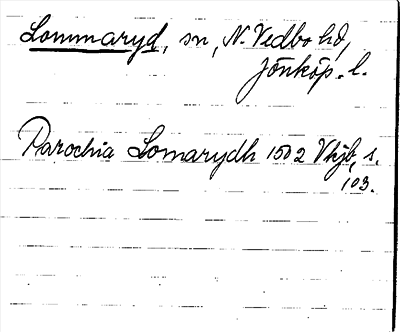 Lommaryd, sn, N. Vedbo hd,
Jönköp. l.
Parochia Lomarydh 1502 Vhjb, s.
103.